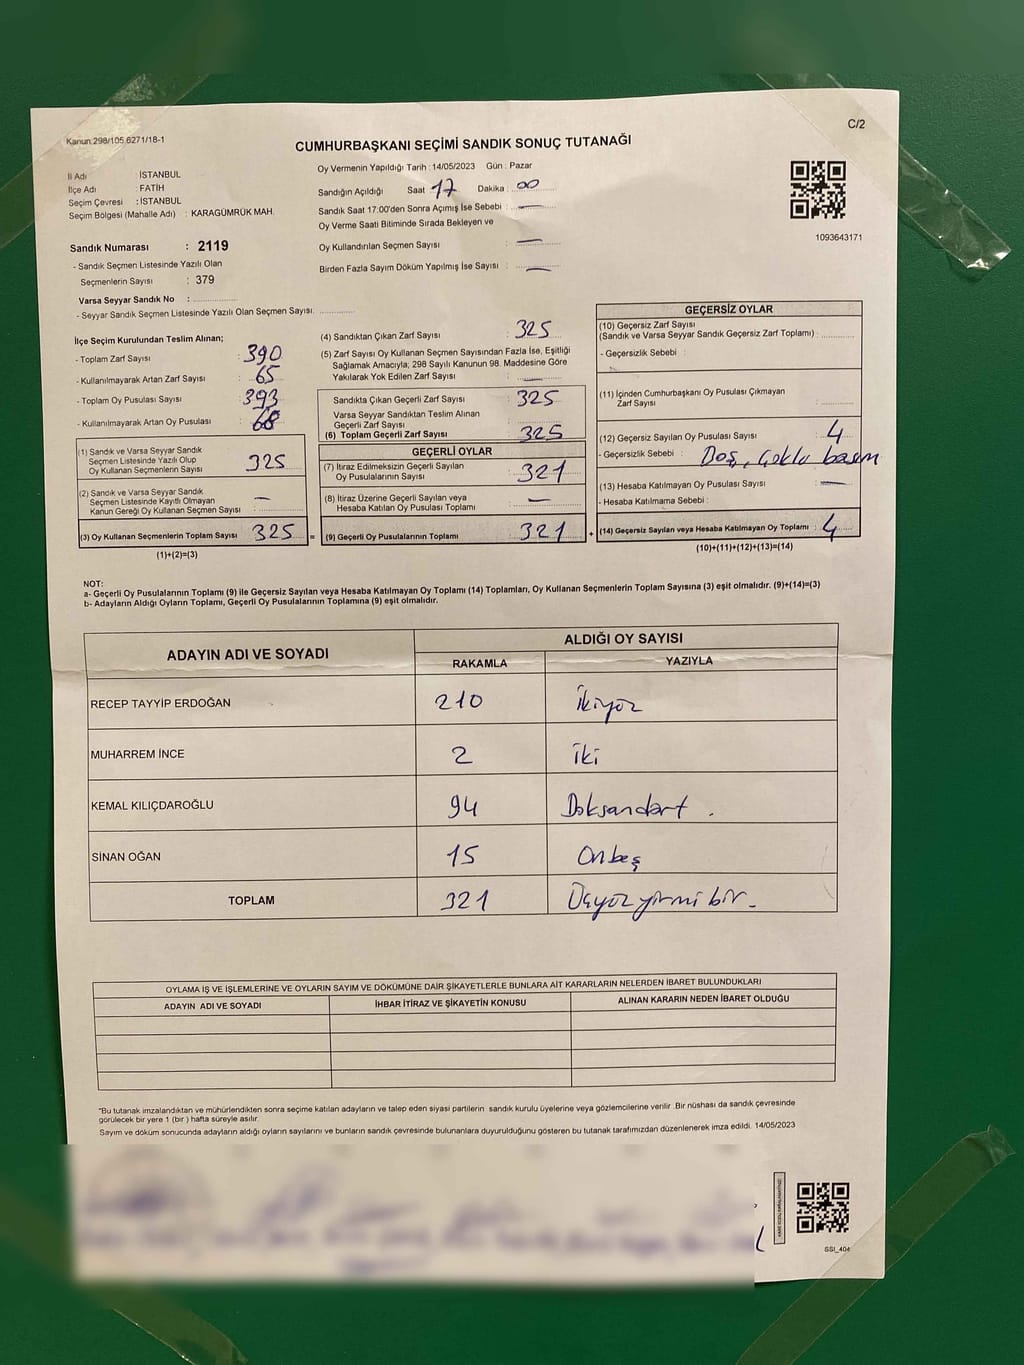 C/2
Kanun:298/105,6271/18-1
CUMHURBAŞKANI SEÇİMİ SANDIK SONUÇ TUTANAĞI
İl Adı : İSTANBUL
İlçe Adı : FATİH
Seçim Çevresi : İSTANBUL
Seçim Bölgesi (Mahalle Adı) : KARAGÜMRÜK MAH.
Sandık Numarası : 2119
- Sandık Seçmen Listesinde Yazılı Olan
Seçmenlerin Sayısı : 379
Varsa Seyyar Sandık No :
- Seyyar Sandık Seçmen Listesinde Yazılı Olan Seçmen Sayısı.
Oy Vermenin Yapıldığı Tarih : 14/05/2023 Gün : Pazar
Sandığın Açıldığı Saat 17 Dakika : 00
Sandık Saat 17:00'den Sonra Açımış İse Sebebi : —
Oy Verme Saati Bitiminde Sırada Bekleyen ve
Oy Kullandırılan Seçmen Sayısı —
Birden Fazla Sayım Döküm Yapılmış İse Sayısı : —
1093643171
İlçe Seçim Kurulundan Teslim Alınan;
- Toplam Zarf Sayısı : 390
- Kullanılmayarak Artan Zarf Sayısı : 65
- Toplam Oy Pusulası Sayısı : 393
- Kullanılmayarak Artan Oy Pusulası : 68
(1) Sandık ve Varsa Seyyar Sandık
Seçmen Listesinde Yazılı Olup
Oy Kullanan Seçmenlerin Sayısı 325
(2) Sandık ve Varsa Seyyar Sandık
Seçmen Listesinde Kayıtlı Olmayan
Kanun Gereği Oy Kullanan Seçmen Sayısı : —
(3) Oy Kullanan Seçmenlerin Toplam Sayısı 325 =
(1)+(2)=(3)
(4) Sandıktan Çıkan Zarf Sayısı : 325
(5) Zarf Sayısı Oy Kullanan Seçmen Sayısından Fazla İse, Eşitliği
Sağlamak Amacıyla; 298 Sayılı Kanunun 98. Maddesine Göre
Yakılarak Yok Edilen Zarf Sayısı : —
Sandıkta Çıkan Geçerli Zarf Sayısı : 325
Varsa Seyyar Sandıktan Teslim Alınan
Geçerli Zarf Sayısı :
(6) Toplam Geçerli Zarf Sayısı 325
GEÇERLİ OYLAR
(7) İtiraz Edilmeksizin Geçerli Sayılan
Oy Pusulalarının Sayısı : 321
(8) İtiraz Üzerine Geçerli Sayılan veya
Hesaba Katılan Oy Pusulası Toplamı : —
(9) Geçerli Oy Pusulalarının Toplamı 321 +
GEÇERSİZ OYLAR
(10) Geçersiz Zarf Sayısı
(Sandık ve Varsa Seyyar Sandık Geçersiz Zarf Toplamı) :
- Geçersizlik Sebebi :
(11) İçinden Cumhurbaşkanı Oy Pusulası Çıkmayan
Zarf Sayısı :
(12) Geçersiz Sayılan Oy Pusulası Sayısı : 4
- Geçersizlik Sebebi : Boş, Çoklu basım
(13) Hesaba Katılmayan Oy Pusulası Sayısı : —
- Hesaba Katılmama Sebebi :
(14) Geçersiz Sayılan veya Hesaba Katılmayan Oy Toplamı : 4
(10)+(11)+(12)+(13)=(14)
NOT:
a- Geçerli Oy Pusulalarının Toplamı (9) ile Geçersiz Sayılan veya Hesaba Katılmayan Oy Toplamı (14) Toplamları, Oy Kullanan Seçmenlerin Toplam Sayısına (3) eşit olmalıdır. (9)+(14)=(3)
b- Adayların Aldığı Oyların Toplamı, Geçerli Oy Pusulalarının Toplamına (9) eşit olmalıdır.
ADAYIN ADI VE SOYADI
ALDIĞI OY SAYISI
RAKAMLA YAZIYLA
RECEP TAYYİP ERDOĞAN 210 İkiyüz
MUHARREM İNCE 2 İki
KEMAL KILIÇDAROĞLU 94 Doksandört.
SİNAN OĞAN 15 Onbeş
TOPLAM 321 Üçyüzyirmi bir.
OYLAMA İŞ VE İŞLEMLERİNE VE OYLARIN SAYIM VE DÖKÜMÜNE DAİR ŞİKAYETLERLE BUNLARA AİT KARARLARIN NELERDEN İBARET BULUNDUKLARI
ADAYIN ADI VE SOYADI İHBAR İTİRAZ VE ŞİKAYETİN KONUSU ALINAN KARARIN NEDEN İBARET OLDUĞU
"Bu tutanak imzalandıktan ve mühürlendikten sonra seçime katılan adayların ve talep eden siyasi partilerin sandık kurulu üyelerine veya gözlemcilerine verilir .Bir nüshası da sandık çevresinde
görülecek bir yere 1 (bir ) hafta süreyle asılır.
Sayım ve döküm sonucunda adayların aldığı oyların sayılarını ve bunların sandık çevresinde bulunanlara duyurulduğunu gösteren bu tutanak tarafımızdan düzenlenerek imza edildi. 14/05/2023
SSI_404